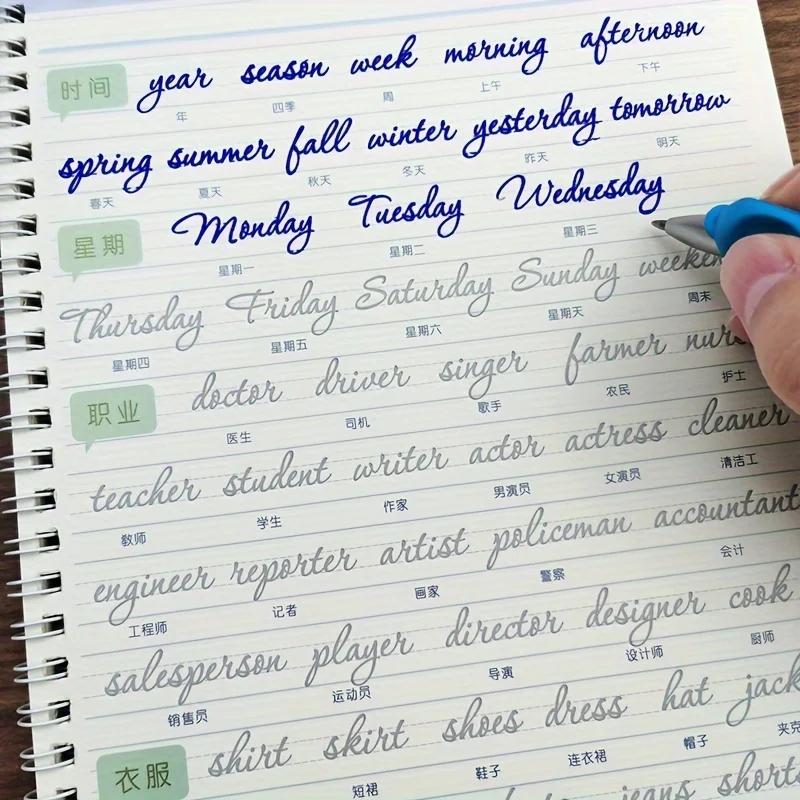 时间 year season week morning afternoon
年 四季 周 上午 下午
spring summer fall winter yesterday tomorrow
春天 夏天 秋天 冬天 昨天 明天
星期 Monday Tuesday Wednesday
星期一 星期二 星期三
Thursday Friday Saturday Sunday
星期四 星期五 星期六 星期天 周末
职业 doctor driver singer farmer
医生 司机 歌手 农民 护士
teacher student writer actor actress cleaner
教师 学生 作家 男演员 女演员 清洁工
engineer reporter artist policeman accountant
工程师 记者 画家 警察 会计
salesperson player director designer cook
销售员 运动员 导演 设计师 厨师
衣服 shirt skirt shoes dress hat jack
短裙 鞋子 连衣裙 帽子 夹克
jeans shorts